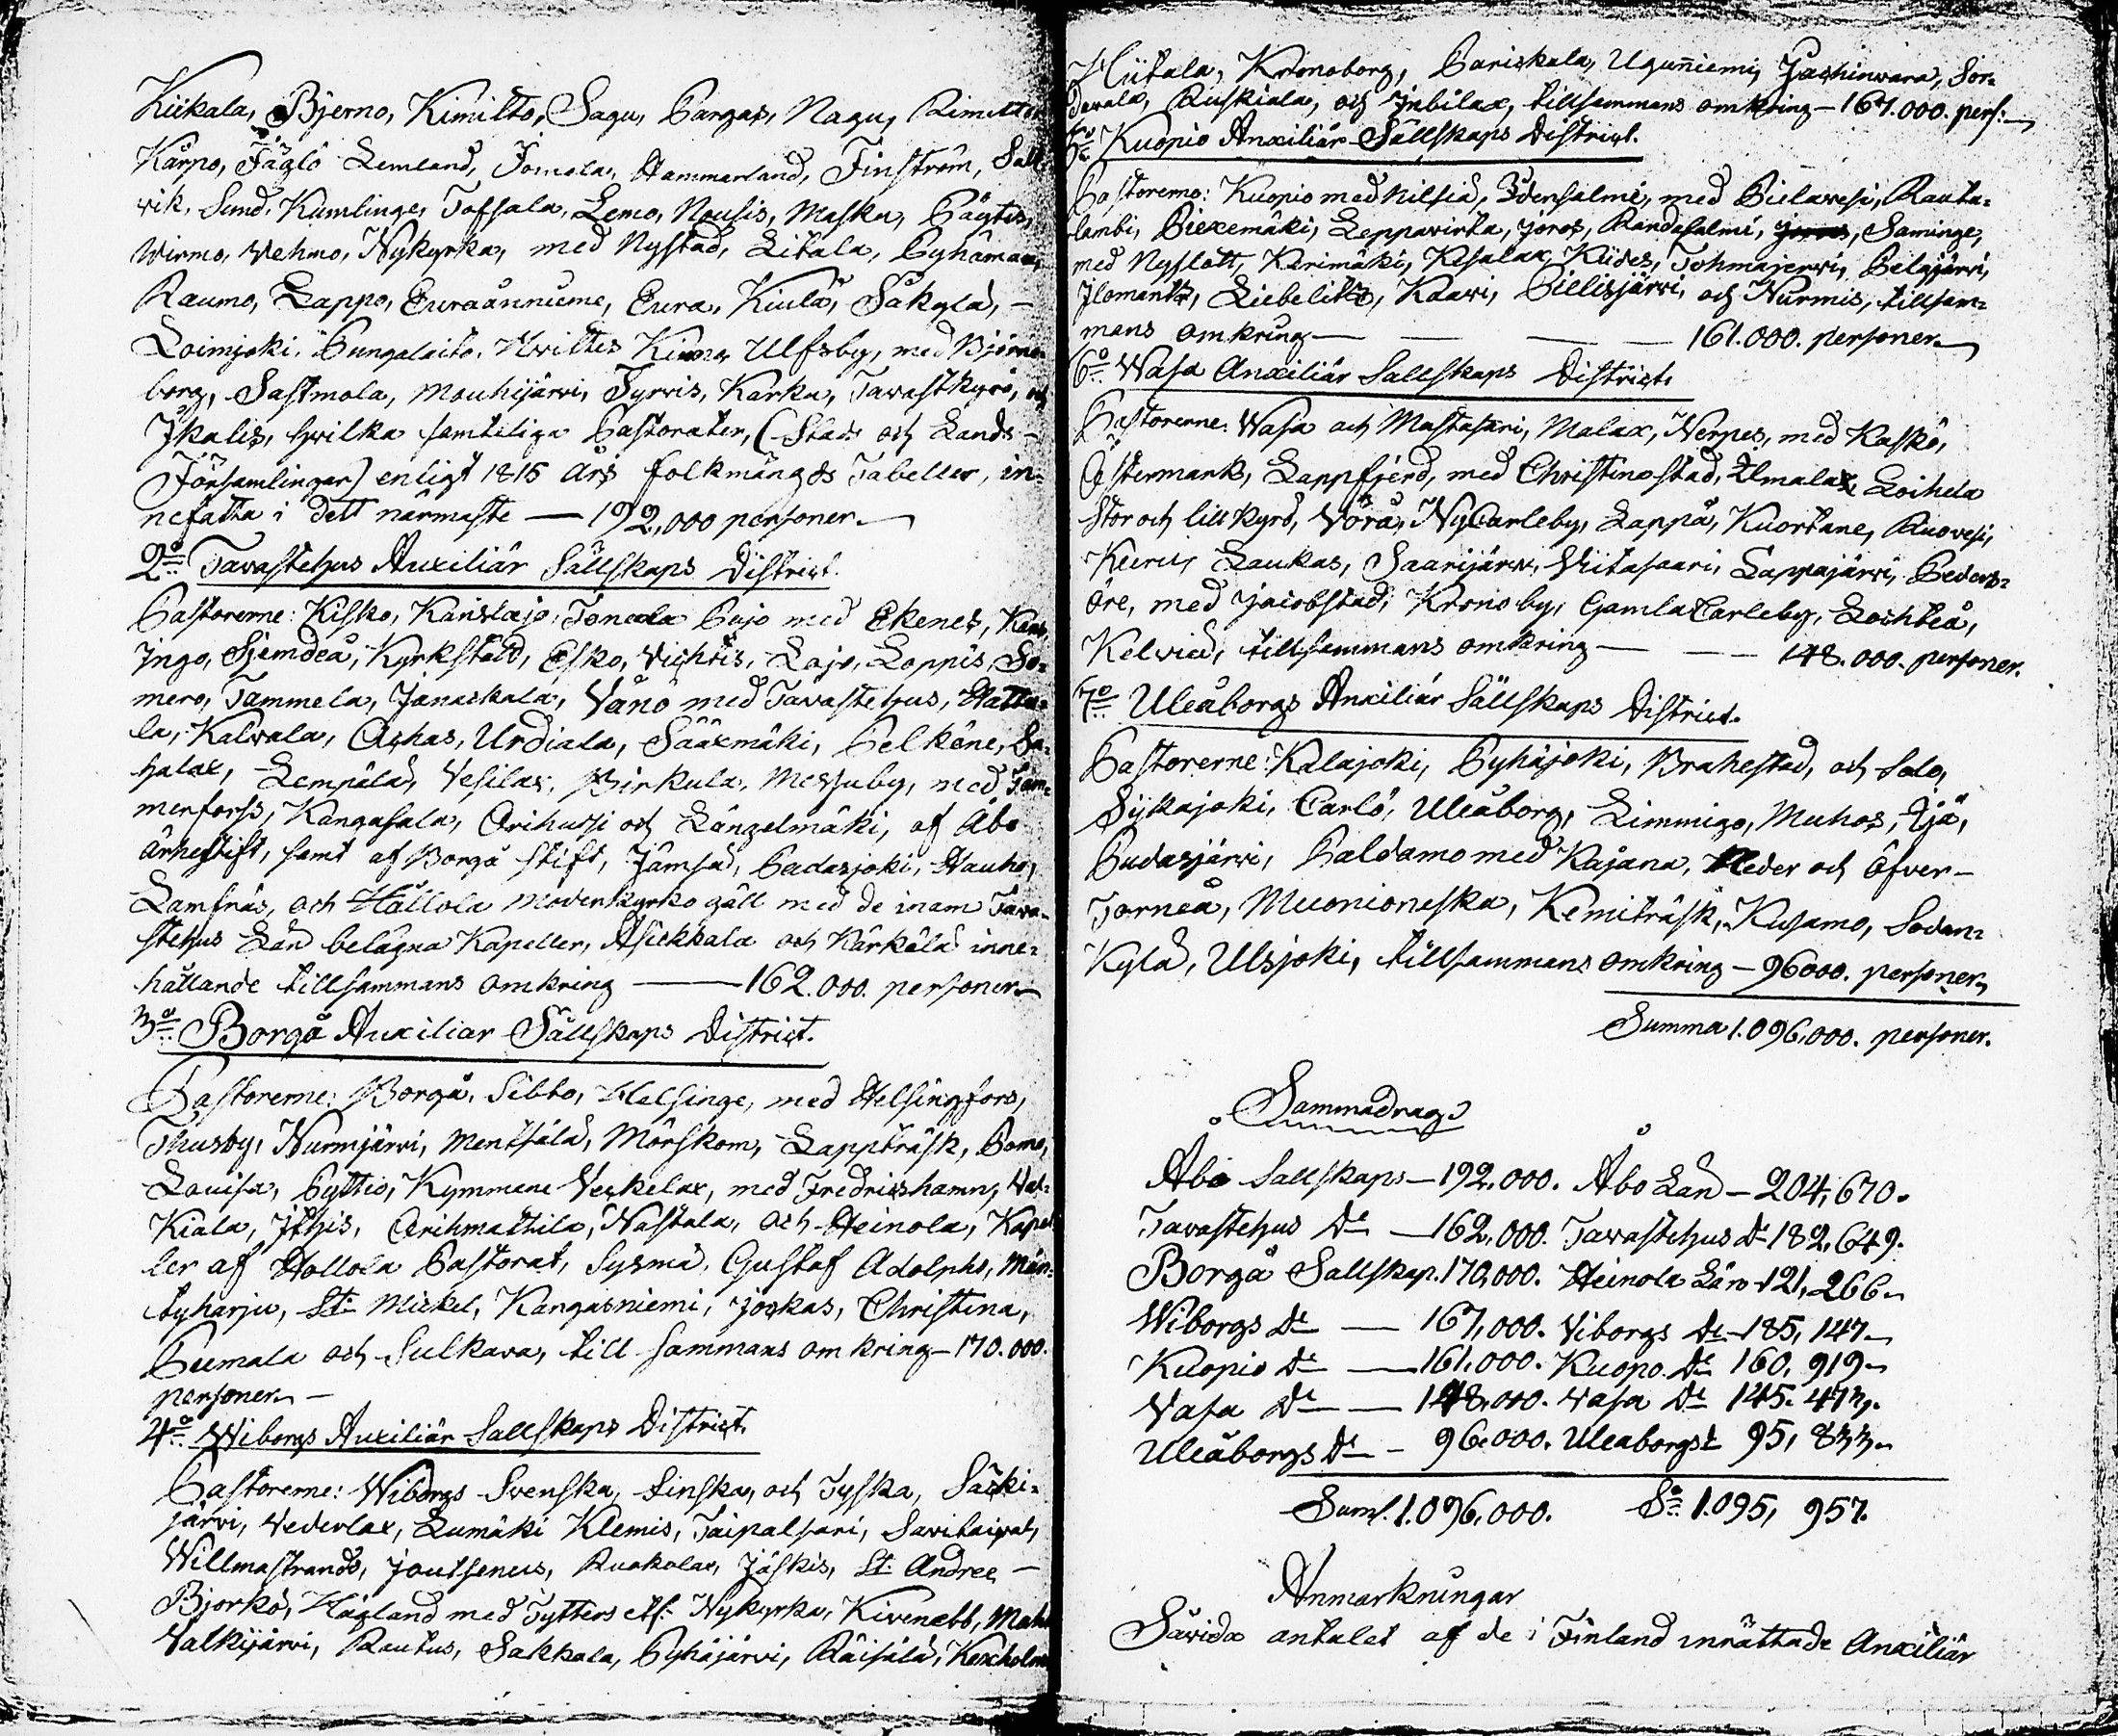 Kiikala, Bjerno, Kimitto, Sagu, Pargas, Nagu, Rimitto
Kårpo, Föglö Lemland, Jomala, Hammarland, Finström, Salt-
vik, Sund, Kumlinge, Tofsala, Lemo, Nousis, Masku, Pögtis,
Wirmo, Vehmo, Nykyrka, med Nystad, Litala, Pyhämaa,
Raumo, Lappo, Euraåminne, Eura, Kiula, Säkyla, -
Loimjoki, Pungalaito, Hvittis Kiuma, Ulfsby, med Björne-
borg, Sastmola, Mouhijärvi, Tyrvis, Karku, Tavastkyrö, och
Ikalis, hvilka samteliga Pastorater, (Stads och Lands-
Församlingar) enligt 1815 års folkmängds Tabeller, in-
nefatta i dett närmaste — 192,000 personer.
2:o Tavastehus Auxiliär Sällskaps District.
Pastorerne: Kisko, Karislojo, Tenala Pojo med Ekenes, Karis,
Ingo, Sjemdeå, Kyrkslåd, Esko, Vichtis, Lojo, Loppis, So-
mero, Tammela, Janackala, Vånö med Tavastehus, Hattu-
la, Kalvala, Achas, Urdiala, Sääxmäki, Pelkäne, Sa-
halax, Lempälä, Vesilax, Birkula, Messuby, med Tam-
merforss, Kangasala, Orihvesi och Längelmäki, af Åbo
Ärkestift, samt af Borgå stift, Jämsä, Padasjoki, Hauho,
Lamfnäs, och Hållola moderkyrko gäll med de inom Tava-
stehus Län belägna Kapeller, Asickkala och Kärkälä inne-
hållande tillsammans omkring — 162.000. personer
3:o Borgå Auxiliar Sällskaps District.
Pastorerne: Borgå, Sibbo, Helsinge, med Helsingfors,
Thusby, Nurmijärvi, Mentsälä, Mörskom, Lappträsk, Perno,
Louisa, Pyttis, Kymmene Veckelax, med Fredrisshamn, Val-
Kiala, Itthis, Orihmattila, Nastala, och Heinola, Kapel-
ler af Hollola Pastorat, Sysmä, Gustaf Adolphs, Män-
tyharju, S:t Mickel, Kangasniemi, Jockas, Christina,
Puumala och Sulkava, till sammans omkring – 170.000.
personer. –
4:o Wiborgs Auxiliär Sallskaps District.
Pastorerne: Wiborgs Svenska, Finska, och Tyska, Säcki-
järvi, Vederlax, Lumäki Klemis, Taipalsari, Savitaipal,
Willmastrands, Joutsenus, Ruokolax, Jäskis, S:t Andree –
Bjorkö, Hågland med Tytters etc: Nykyrka, Kivenebb, Mohla
Valkijärvi, Rautus, Sakkola, Pyhäjärvi, Räisälä, Kexholm
Hiitala, Kronoborg, Pariskala, Uguniemi, Jaskinvara, Sor-
davala, Ruskiala, och Inbilax, tillsammans omkring – 167.000. pers:
5:o Kuopio Auxiliär Sällskaps District.
Pastorerne: Kuopio med Nilsiä, Idensalmi, med Pielavesi, Rauta-
lambi, Piexemäki, Leppavirta, Joros, Randasalmi, Saminge,
med Nyslott, Kerimäki, Kesalax Kides, Tohmajervi, Pelgjärvi,
Ilomants, Liebelits, Kaavi, Pillisjärvi och Nurmis, tillsam-
mans omkring — — — 161.000. personer
6:o Wasa Auxiliär Sallskaps District.
Pastorerne: Wasa och Mustasari, Malax, Nerpes, med Kaskö,
Östermark, Lappfjerd, med Christinestad, Ilmala Loihela
Stor och lill Kyrö, Vörå, NyCarleby, Lappå, Kuortane, Ruovesi,
Keuru, Laukas, Saarijärvi, Viitasaari, Lappajärvi, Peders-
öre, med Jacobstad, Kronoby, Gamla Carleby, Lochteå,
Kelviå, tillsammans omkring — — 148.000. personer.
7:o Uleåborgs Auxiliär Sällskaps District.
Pastorerne: Kalajoki, Pyhäjoki, Brahestad, och Salo,
Siikajoki, Carlö, Uleåborg, Limmigo, Muhos, Ijä,
Pudasjärvi, Paldamo med Kajana, Neder och Öfver-
Torneå, Muonioneska, Kemiträsk, Kusamo, Sodan-
Kylä, Utsjoki, tillsammans omkring – 96000. personer
Summa 1.096,000. personer.
Sammadrag
Åbo Sallskaps – 192.000. Åbo Län – 204,670.
Tavastehus D:o — 162,000. Tavastehus d:o 182,649.
Borgå Sallskap. 170,000. Heinola Län – 121,266
Wiborgs D:o — 167,000. Viborgs D:o – 185,147
Kuopio D:o — 161.000. Kuopo. D:o 160,919
Vasa D:o — 148,000. Vasa D:o 145.473.
Uleåborgs D:o – 96.000. Uleaborgs D:o 95,833
Sum. 1.096,000. S:a 1.095,957.
Anmarkningar
Såvida antalet af de i Finland inrättade Auxiliär